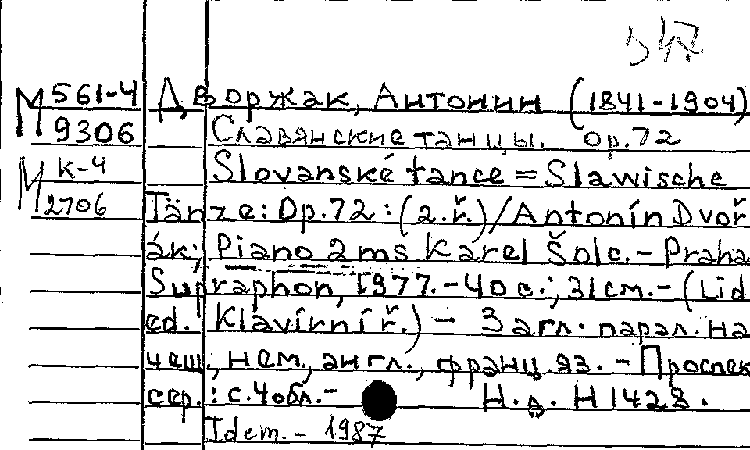 М 561-4 Дворжак, Антонин (1841-1904)
9306 Славянские танцы. Op.72
М К-4 Slovanské tance = Slawische
2706 Tänze: Op.72: (2.ř.)/Antonín Dvoř
ák; Piano 2 ms Karel Šolc. - Praha
Supraphon, 1977. - 40 с.; 31 см. - (Lid
ed. Klavírní ř.) - Загл. парал. на
чеш., нем., англ., франц. яз. - Проспек
сер.: с. 4 обл. - Н.д. H 1428.
Idem. - 1987